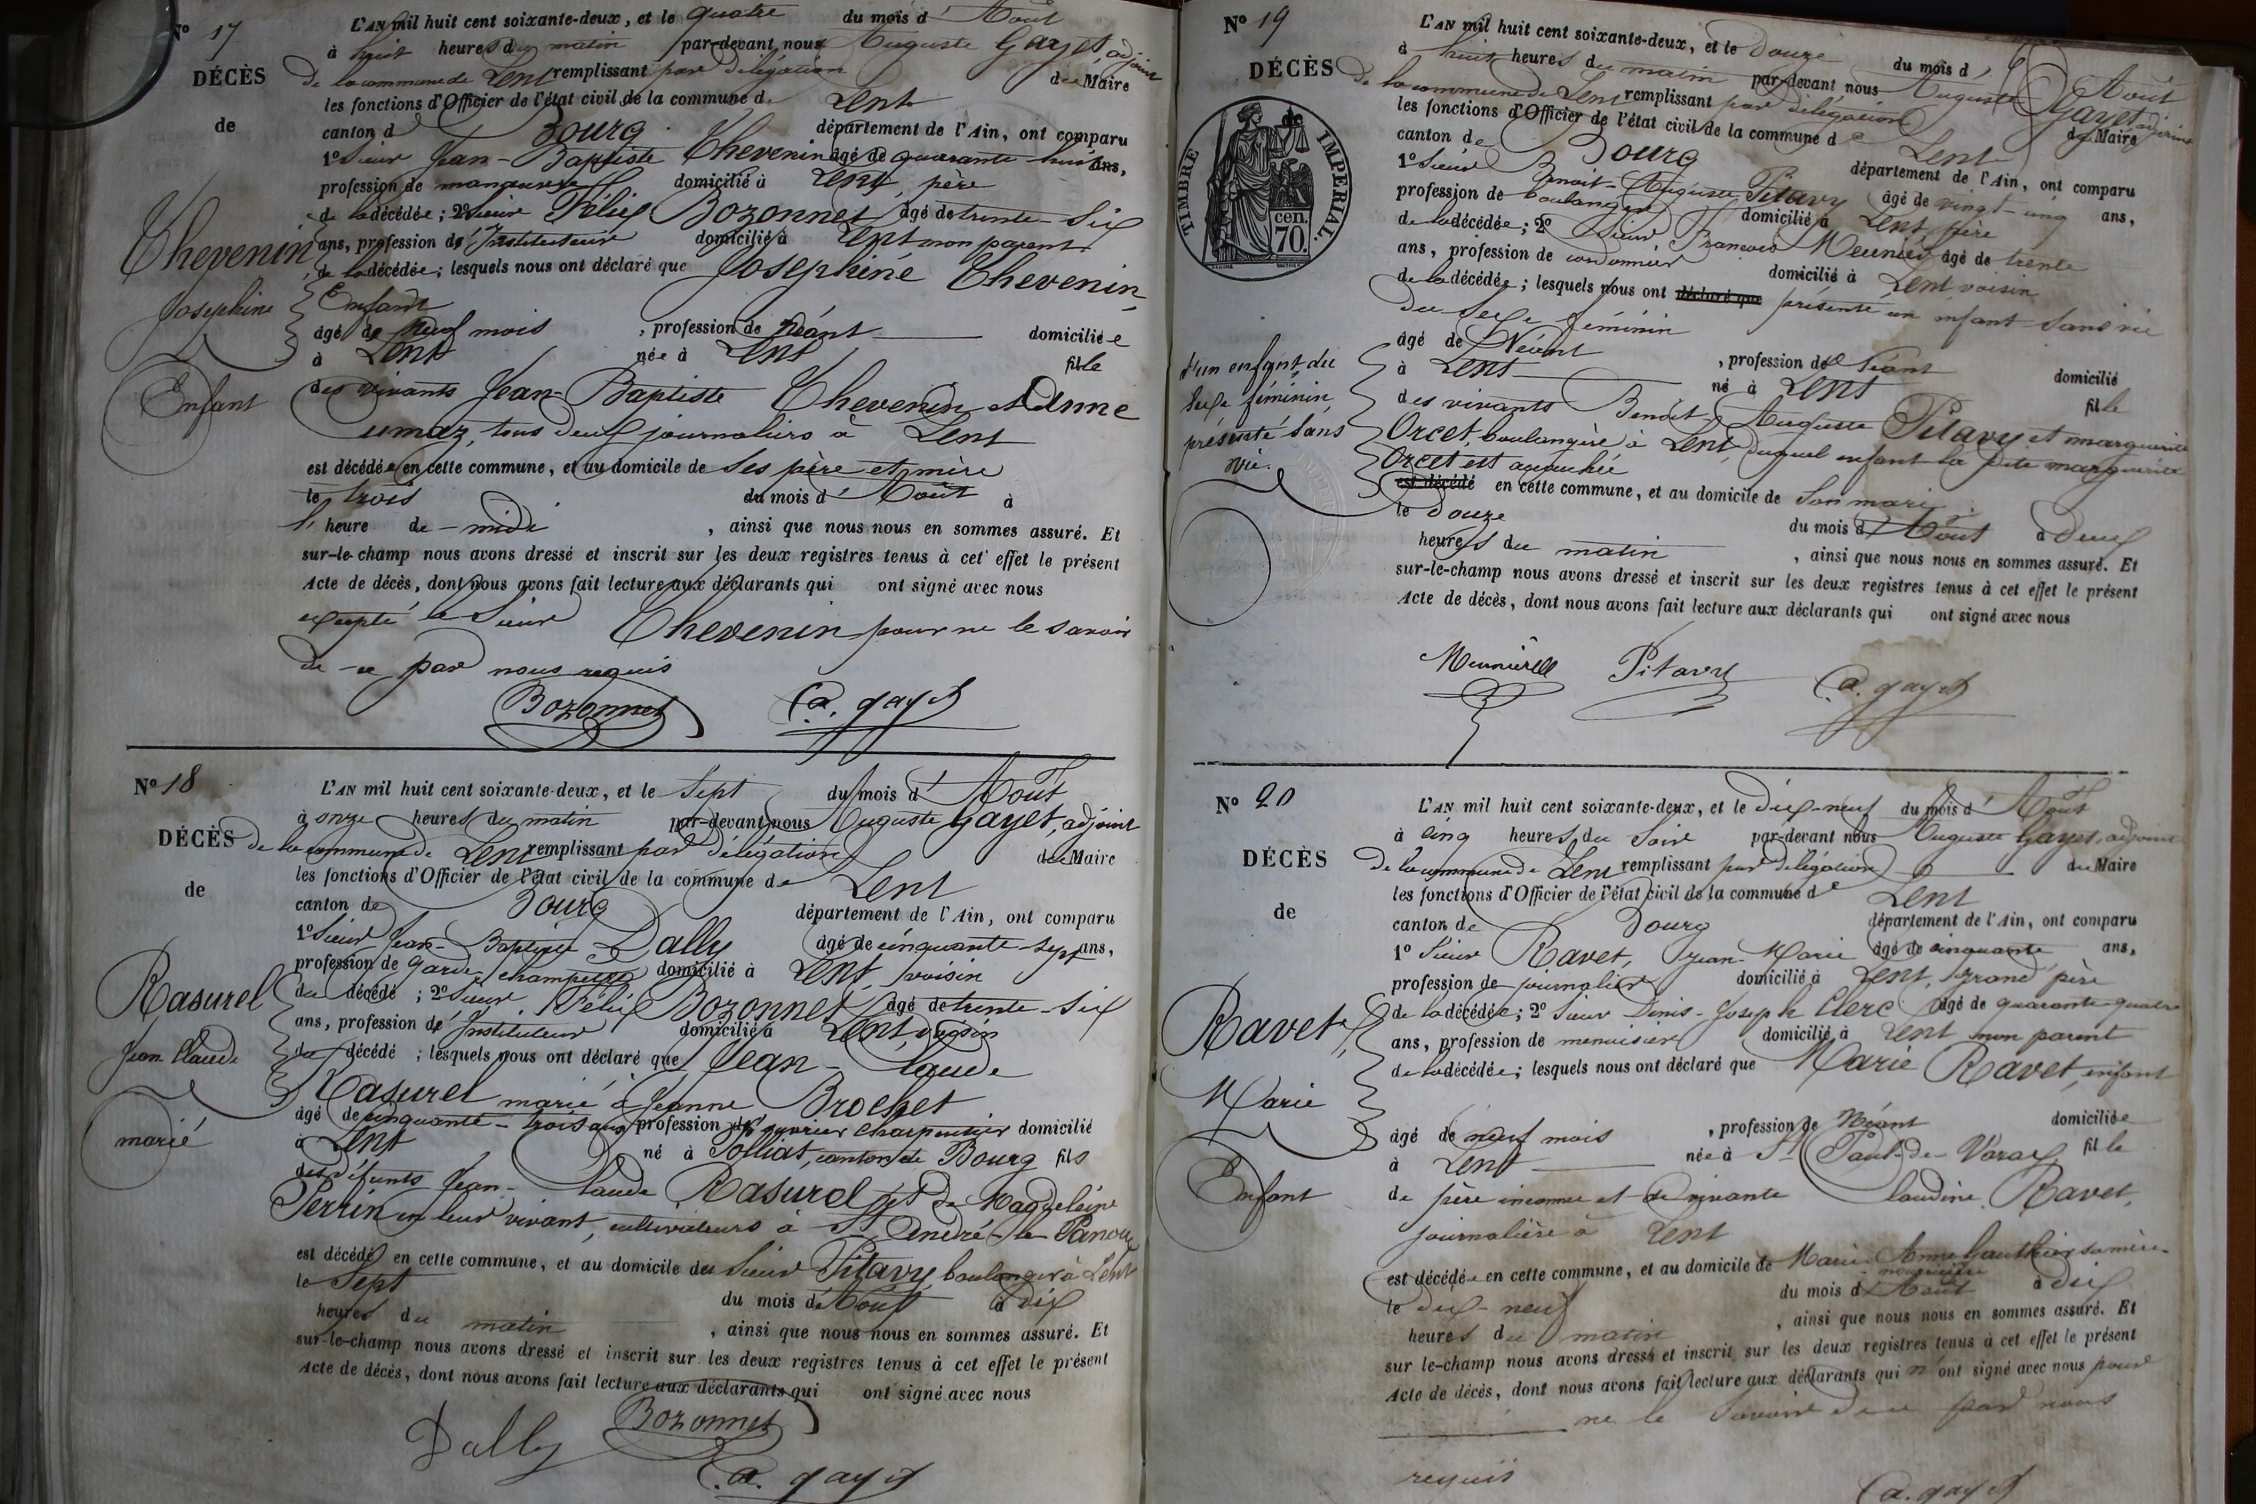 N° 17
DÉCÈS
de
Thevenin
Josephine
Enfant
L'AN mil huit cent soixante-deux, et le quatre du mois d' Août
à huit heures du matin par-devant nous Auguste Gayet, adjoint
de la commune de Lent remplissant par délégation du Maire
les fonctions d'Officier de l'état civil de la commune de Lent
canton de Bourg département de l'Ain, ont comparu
1° Sieur Jean-Baptiste Thevenin âgé de quarante-huit ans,
profession de manœuvre domicilié à Lent, père
de la décédée; 2° Sieur Félix Bozonnet âgé de trente-six
ans, profession d'Instituteur domicilié à Lent non parent
de la décédée; lesquels nous ont déclaré que Josephine Thevenin,
Enfant
âgé de neuf mois, profession de néant domiciliée
à Lent née à Lent fille
des vivants Jean-Baptiste Thevenin et Anne
umaz, tous deux journaliers à Lent
est décédée en cette commune, et au domicile de ses père et mère
le trois du mois d' Août à
l' heure de midi, ainsi que nous nous en sommes assuré. Et
sur-le-champ nous avons dressé et inscrit sur les deux registres tenus à cet effet le présent
Acte de décès, dont nous avons fait lecture aux déclarants qui ont signé avec nous
excepté le Sieur Thevenin pour ne le savoir
de ce par nous requis
Bozonnet A. gayet
N° 18
DÉCÈS
de
Rasurel
Jean Claude
marié
L'AN mil huit cent soixante-deux, et le Sept du mois d' Août
à onze heures du matin par-devant nous Auguste Gayet, adjoint
de la commune de Lent remplissant par délégation du Maire
les fonctions d'Officier de l'état civil de la commune de Lent
canton de Bourg département de l'Ain, ont comparu
1° Sieur Jean-Baptiste Dally âgé de cinquante sept ans,
profession de garde-champêtre domicilié à Lent, voisin
du décédé; 2° Sieur Félix Bozonnet âgé de trente-six
ans, profession d'Instituteur domicilié à Lent, voisin
du décédé; lesquels nous ont déclaré que Jean-Claude
Rasurel marié à Jeanne Brochet
âgé de cinquante-trois ans profession d'ouvrier charpentier domicilié
à Lent né à Polliat, canton de Bourg fils
des défunts Jean-Claude Rasurel et de Magdeleine
Perrin en leur vivant, cultivateurs à St Dendré-le-Panoux
est décédé en cette commune, et au domicile du Sieur Pitavy, boulanger à Lent
le Sept du mois d' Août à dix
heures du matin, ainsi que nous nous en sommes assuré. Et
sur-le-champ nous avons dressé et inscrit sur les deux registres tenus à cet effet le présent
Acte de décès, dont nous avons fait lecture aux déclarants qui ont signé avec nous
Dally Bozonnet
A. gayet
N° 19
DÉCÈS
de
TIMBRE IMPERIAL.
70. cen.
d'un enfant du
Sexe féminin
présenté sans
vie.
L'AN mil huit cent soixante-deux, et le douze du mois d' Août
à huit heures du matin par-devant nous Auguste Gayet, adjoint
de la commune de Lent remplissant par délégation du Maire
les fonctions d'Officier de l'état civil de la commune de Lent
canton de Bourg département de l'Ain, ont comparu
1° Sieur Benoit-Auguste Pitavy âgé de vingt-cinq ans,
profession de boulanger domicilié à Lent père
de la décédée; 2° Sieur François Meunier âgé de trente
ans, profession de cordonnier domicilié à Lent voisin
de la décédée; lesquels nous ont déclaré que présenté un enfant sans vie
du sexe féminin
âgé de Néant, profession de Néant domicilié
à Lent né à Lent fille
des vivants Benoit Auguste Pitavy et marguerite
Orcet, boulangère à Lent duquel enfant la dite marguerite
Orcet est accouchée
est décédé en cette commune, et au domicile de son mari
le douze du mois d' Août à deux
heures du matin, ainsi que nous nous en sommes assuré. Et
sur-le-champ nous avons dressé et inscrit sur les deux registres tenus à cet effet le présent
Acte de décès, dont nous avons fait lecture aux déclarants qui ont signé avec nous
Pitavy A. gayet
N° 20
DÉCÈS
de
Ravet,
Marie
Enfant
L'AN mil huit cent soixante-deux, et le dix-neuf du mois d' Août
à cinq heures du soir par-devant nous Auguste Gayet, adjoint
de la commune de Lent remplissant par délégation du Maire
les fonctions d'Officier de l'état civil de la commune de Lent
canton de Bourg département de l'Ain, ont comparu
1° Sieur Ravet, Jean-Marie âgé de cinquante ans,
profession de journalier domicilié à Lent, grand père
de la décédée; 2° Sieur Denis-Joseph Clerc âgé de quarante-quatre
ans, profession de menuisier domicilié à Lent non parent
de la décédée; lesquels nous ont déclaré que Marie Ravet, enfant
âgé de neuf mois, profession de Néant domiciliée
à Lent née à St Paul-de-Varax fille
de père inconnu et de vivante Claudine Ravet,
journalière à Lent
est décédée en cette commune, et au domicile de Marie Anne Gauthier sa mère
nourricière
le dix-neuf du mois d' Août à dix
heures du matin, ainsi que nous nous en sommes assuré. Et
sur le-champ nous avons dressé et inscrit sur les deux registres tenus à cet effet le présent
Acte de décès, dont nous avons fait lecture aux déclarants qui n'ont signé avec nous pour
ne le savoir de ce par nous
requis
A. gayet